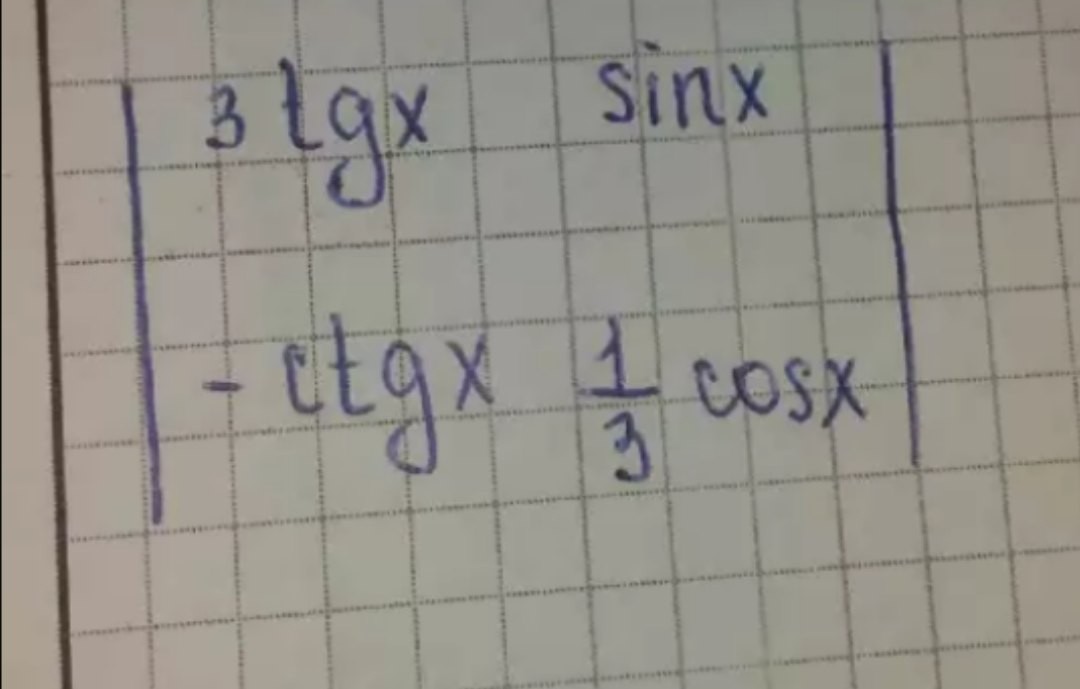 3 tgx sinx
- ctgx 1/3 cosx